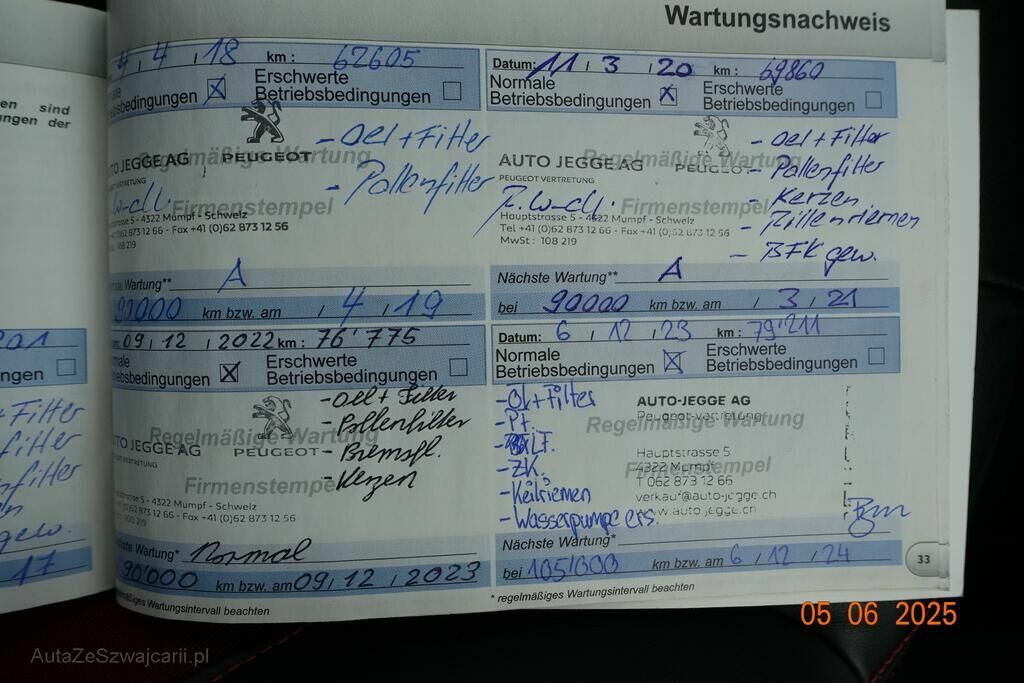 Wartungsnachweis
4 , 4 , 18 km : 62605
Betriebsbedingungen
Erschwerte
Betriebsbedingungen
Regelmäßige Wartung
AUTO JEGGE AG PEUGEOT
PEUGEOT VERTRETUNG
Firmenstempel
Hauptstrasse 5 - 4322 Mumpf - Schwelz
+41 (0)62 873 12 66 - Fax +41 (0)62 873 12 56
108 219
- Oel + Filter
- Pollenfilter
Nächste Wartung** A
km bzw. am / 4 / 19
Datum: 11 / 3 / 20 km : 69860
Normale
Betriebsbedingungen
Erschwerte
Betriebsbedingungen
Regelmäßige Wartung
AUTO JEGGE AG PEUGEOT
PEUGEOT VERTRETUNG
Firmenstempel
Hauptstrasse 5 - 4322 Mumpf - Schwelz
Tel +41 (0)62 873 12 66 - Fax +41 (0)62 873 12 56
MwSt : 108 219
- Oel + Filter
- Pollenfilter
- Kerzen
- Rillenriemen
- BFK gew.
Nächste Wartung** A
bei 90000 km bzw. am / 3 / 21
09 , 12 , 2022 km : 76'775
Betriebsbedingungen
Erschwerte
Betriebsbedingungen
Regelmäßige Wartung
AUTO JEGGE AG PEUGEOT
VERTRETUNG
Firmenstempel
5 - 4322 Mumpf - Schwelz
+41 (0)62 873 12 66 - Fax +41 (0)62 873 12 56
- Oel + Filter
- Pollenfilter
- Bremsfl.
- Kerzen
Nächste Wartung* Normal
90'000 km bzw. am 09 , 12 , 2023
regelmäßiges Wartungsintervall beachten
Datum: 6 , 12 , 23 km : 79'211
Normale
Betriebsbedingungen
Erschwerte
Betriebsbedingungen
Regelmäßige Wartung
Firmenstempel
AUTO-JEGGE AG
Peugeot-Vertretung
Hauptstrasse 5
4322 Mumpf
T 062 873 12 66
verkauf@auto-jegge.ch
www.auto-jegge.ch
- Öl + Filter
- Pf.
- LF.
- ZK.
- Keilriemen
- Wasserpumpe ers.
Nächste Wartung*
bei 105'000 km bzw. am 6 , 12 , 24
* regelmäßiges Wartungsintervall beachten
33
en sind
ungen der
ngen
+ Filter
gew.
17
05 06 2025
AutaZeSzwajcarii.pl